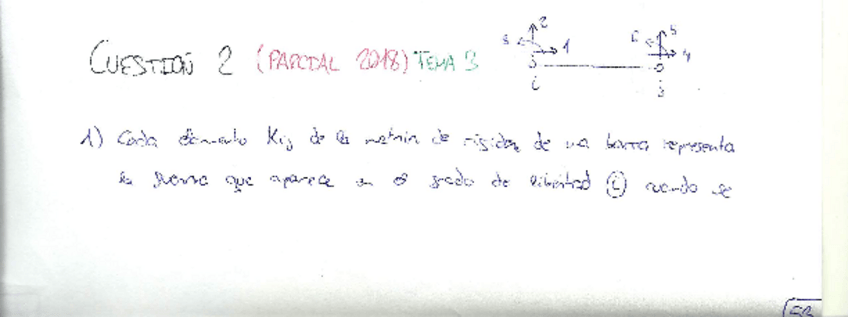 CUESTIÓN 2 (PARCIAL 2018) TEMA 3
3 2 1 6 5 4
i j
1) Cada elemento Kij de la matriz de rigidez de una barra representa
la fuerza que aparece en el grado de libertad (i) cuando se